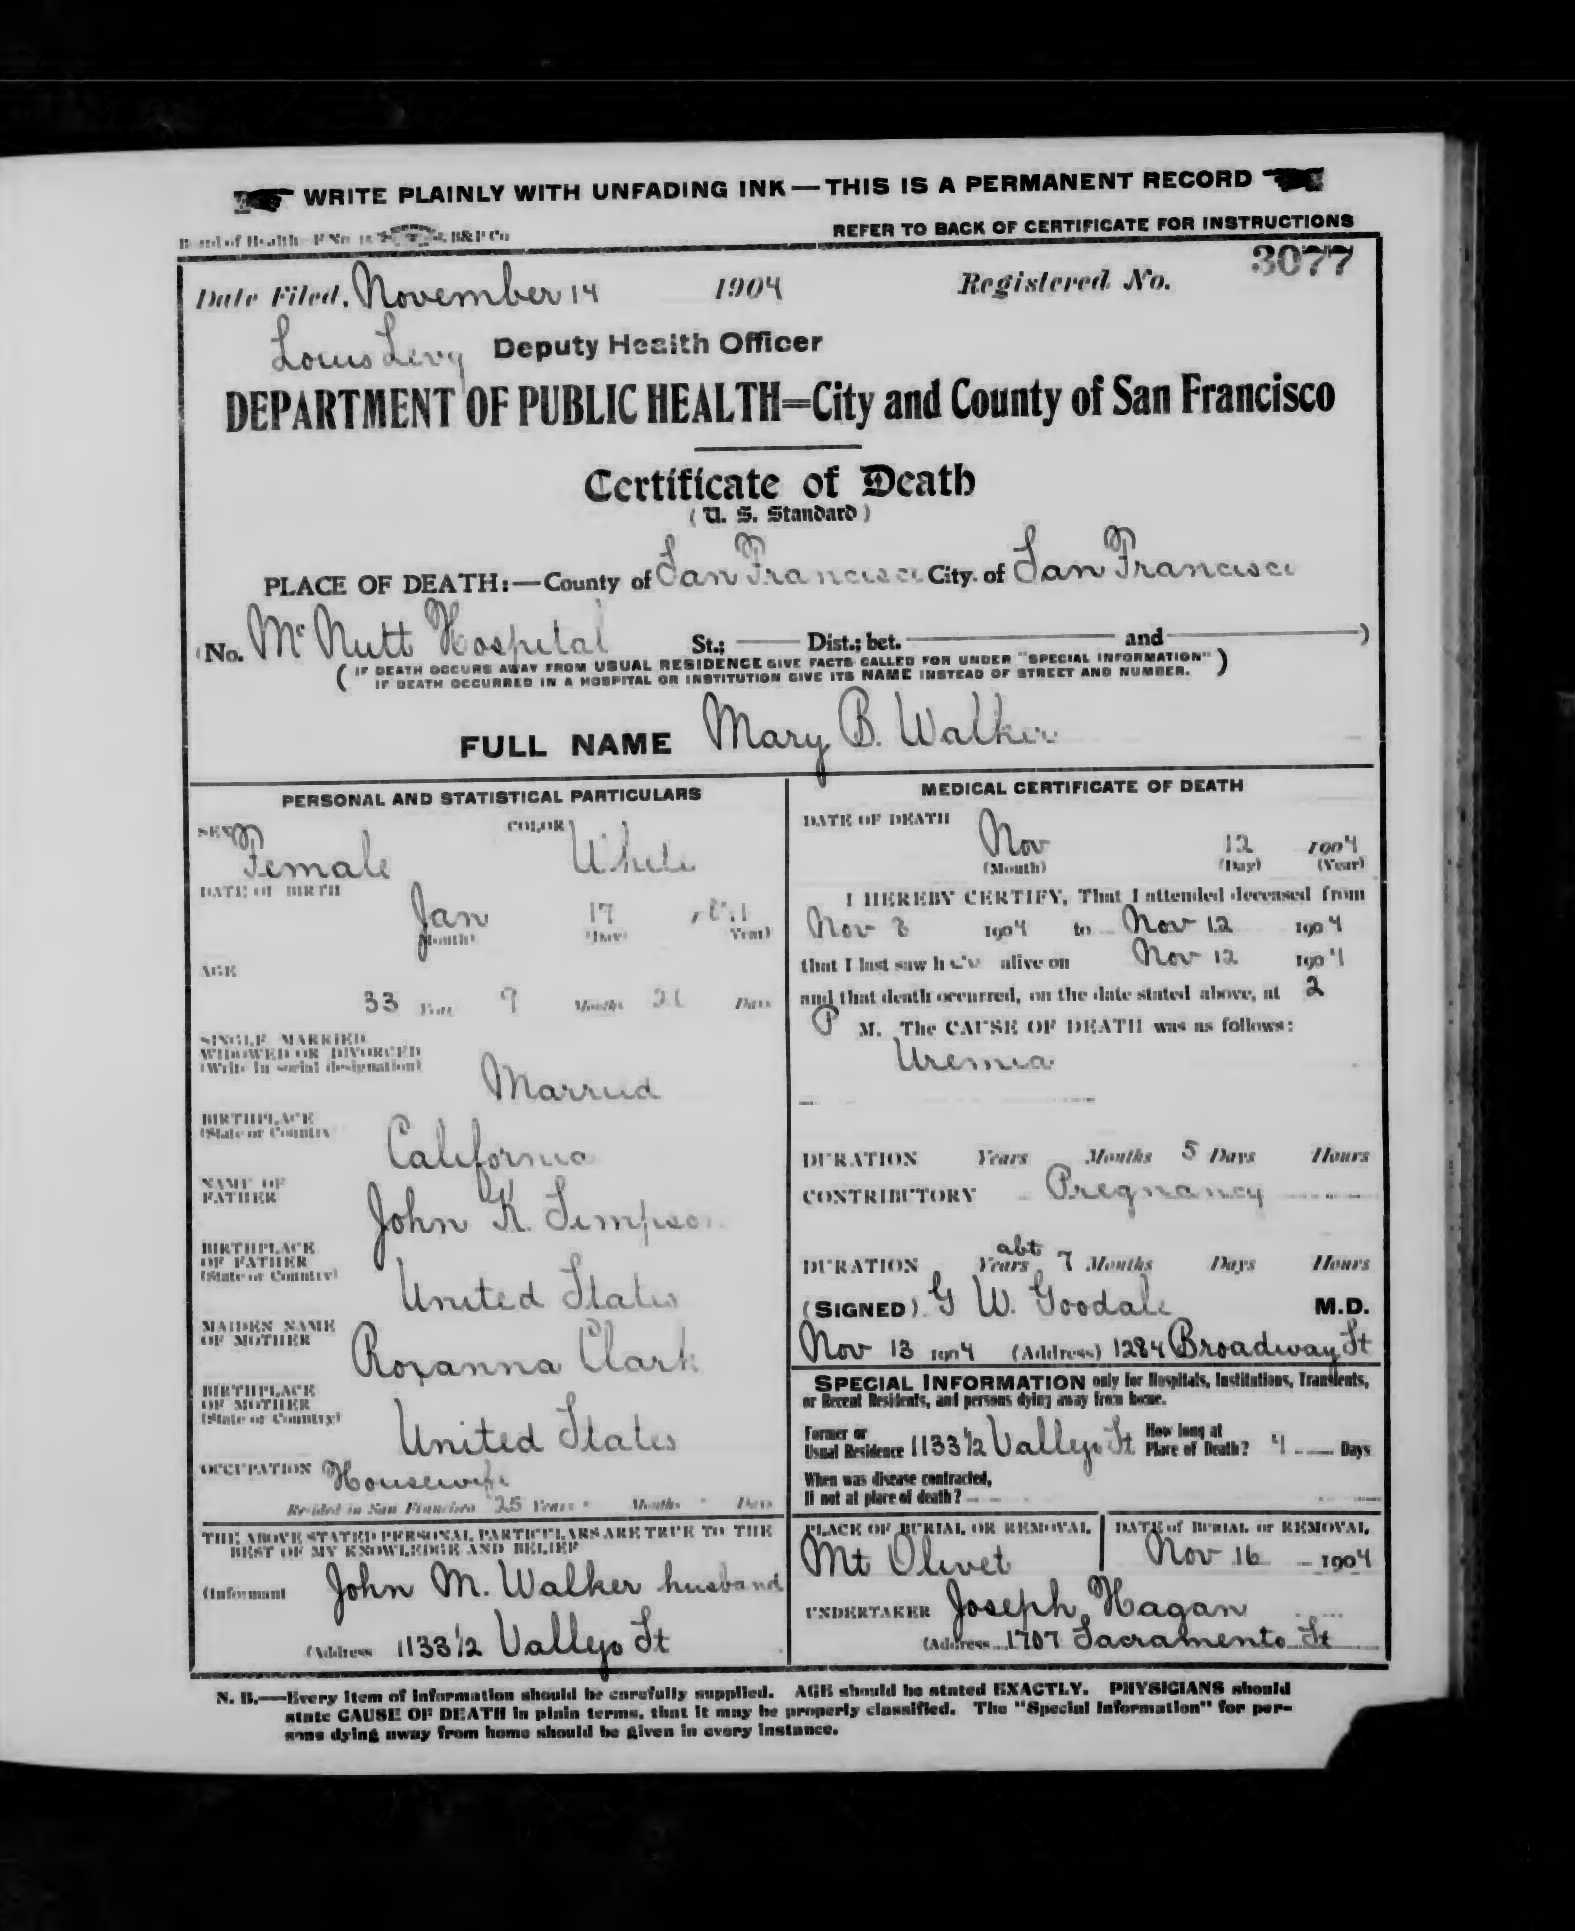 WRITE PLAINLY WITH UNFADING INK — THIS IS A PERMANENT RECORD
Board of Health F No. B&P Co
REFER TO BACK OF CERTIFICATE FOR INSTRUCTIONS
3077
Date Filed, November 14 1904 Registered No.
Louis Levy Deputy Health Officer
DEPARTMENT OF PUBLIC HEALTH=City and County of San Francisco
Certificate of Death
(U. S. Standard)
PLACE OF DEATH:—County of San Francisco City of San Francisco
(No. Mc Nutt Hospital St.; —— Dist.; bet. —— and ——)
(IF DEATH OCCURS AWAY FROM USUAL RESIDENCE GIVE FACTS CALLED FOR UNDER "SPECIAL INFORMATION"
IF DEATH OCCURRED IN A HOSPITAL OR INSTITUTION GIVE ITS NAME INSTEAD OF STREET AND NUMBER.)
FULL NAME Mary B. Walker
PERSONAL AND STATISTICAL PARTICULARS
SEX Female COLOR White
DATE OF BIRTH
Jan 17
(Month) (Day) (Year)
AGE
33 Years 9 Months Days
SINGLE MARRIED
WIDOWED OR DIVORCED
(Write in social designation)
Married
BIRTHPLACE
(State or Country)
California
NAME OF
FATHER
John K. Simpson
BIRTHPLACE
OF FATHER
(State or Country)
United States
MAIDEN NAME
OF MOTHER
Roxanna Clark
BIRTHPLACE
OF MOTHER
(State or Country)
United States
OCCUPATION Housewife
Resided in San Francisco 25 Years - Months - Days
THE ABOVE STATED PERSONAL PARTICULARS ARE TRUE TO THE
BEST OF MY KNOWLEDGE AND BELIEF
(Informant John M. Walker husband
(Address 1133 1/2 Vallejo St
MEDICAL CERTIFICATE OF DEATH
DATE OF DEATH
Nov 12 1904
(Month) (Day) (Year)
I HEREBY CERTIFY, That I attended deceased from
Nov 8 1904 to Nov 12 1904
that I last saw her alive on Nov 12 1904
and that death occurred, on the date stated above, at 2
P M. The CAUSE OF DEATH was as follows:
Uremia
DURATION Years Months 5 Days Hours
CONTRIBUTORY Pregnancy
abt
DURATION Years 7 Months Days Hours
(SIGNED) G W. Goodale M.D.
Nov 13 1904 (Address) 1284 Broadway St
SPECIAL INFORMATION only for Hospitals, Institutions, Transients,
or Recent Residents, and persons dying away from home.
Former or
Usual Residence 1133 1/2 Vallejo St How long at
Place of Death? 4 Days
When was disease contracted,
If not at place of death?
PLACE OF BURIAL OR REMOVAL DATE of BURIAL or REMOVAL
Mt Olivet Nov 16 1904
UNDERTAKER Joseph Hagan
(Address 1707 Sacramento St
N. B.—Every item of information should be carefully supplied. AGE should be stated EXACTLY. PHYSICIANS should
state CAUSE OF DEATH in plain terms, that it may be properly classified. The "Special Information" for per-
sons dying away from home should be given in every instance.